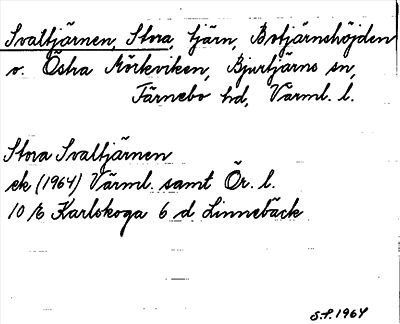 Svaltjärnen, Stora, tjärn, Botjärnshöjden
o. Östra Mörkviken, Bjurtjärns sn,
Färnebo hd, Värml. l.
Stora Svaltjärnen
ek (1964) Värml. samt Ör. l.
10 E Karlskoga 6 d Linnebäck
S.F. 1964